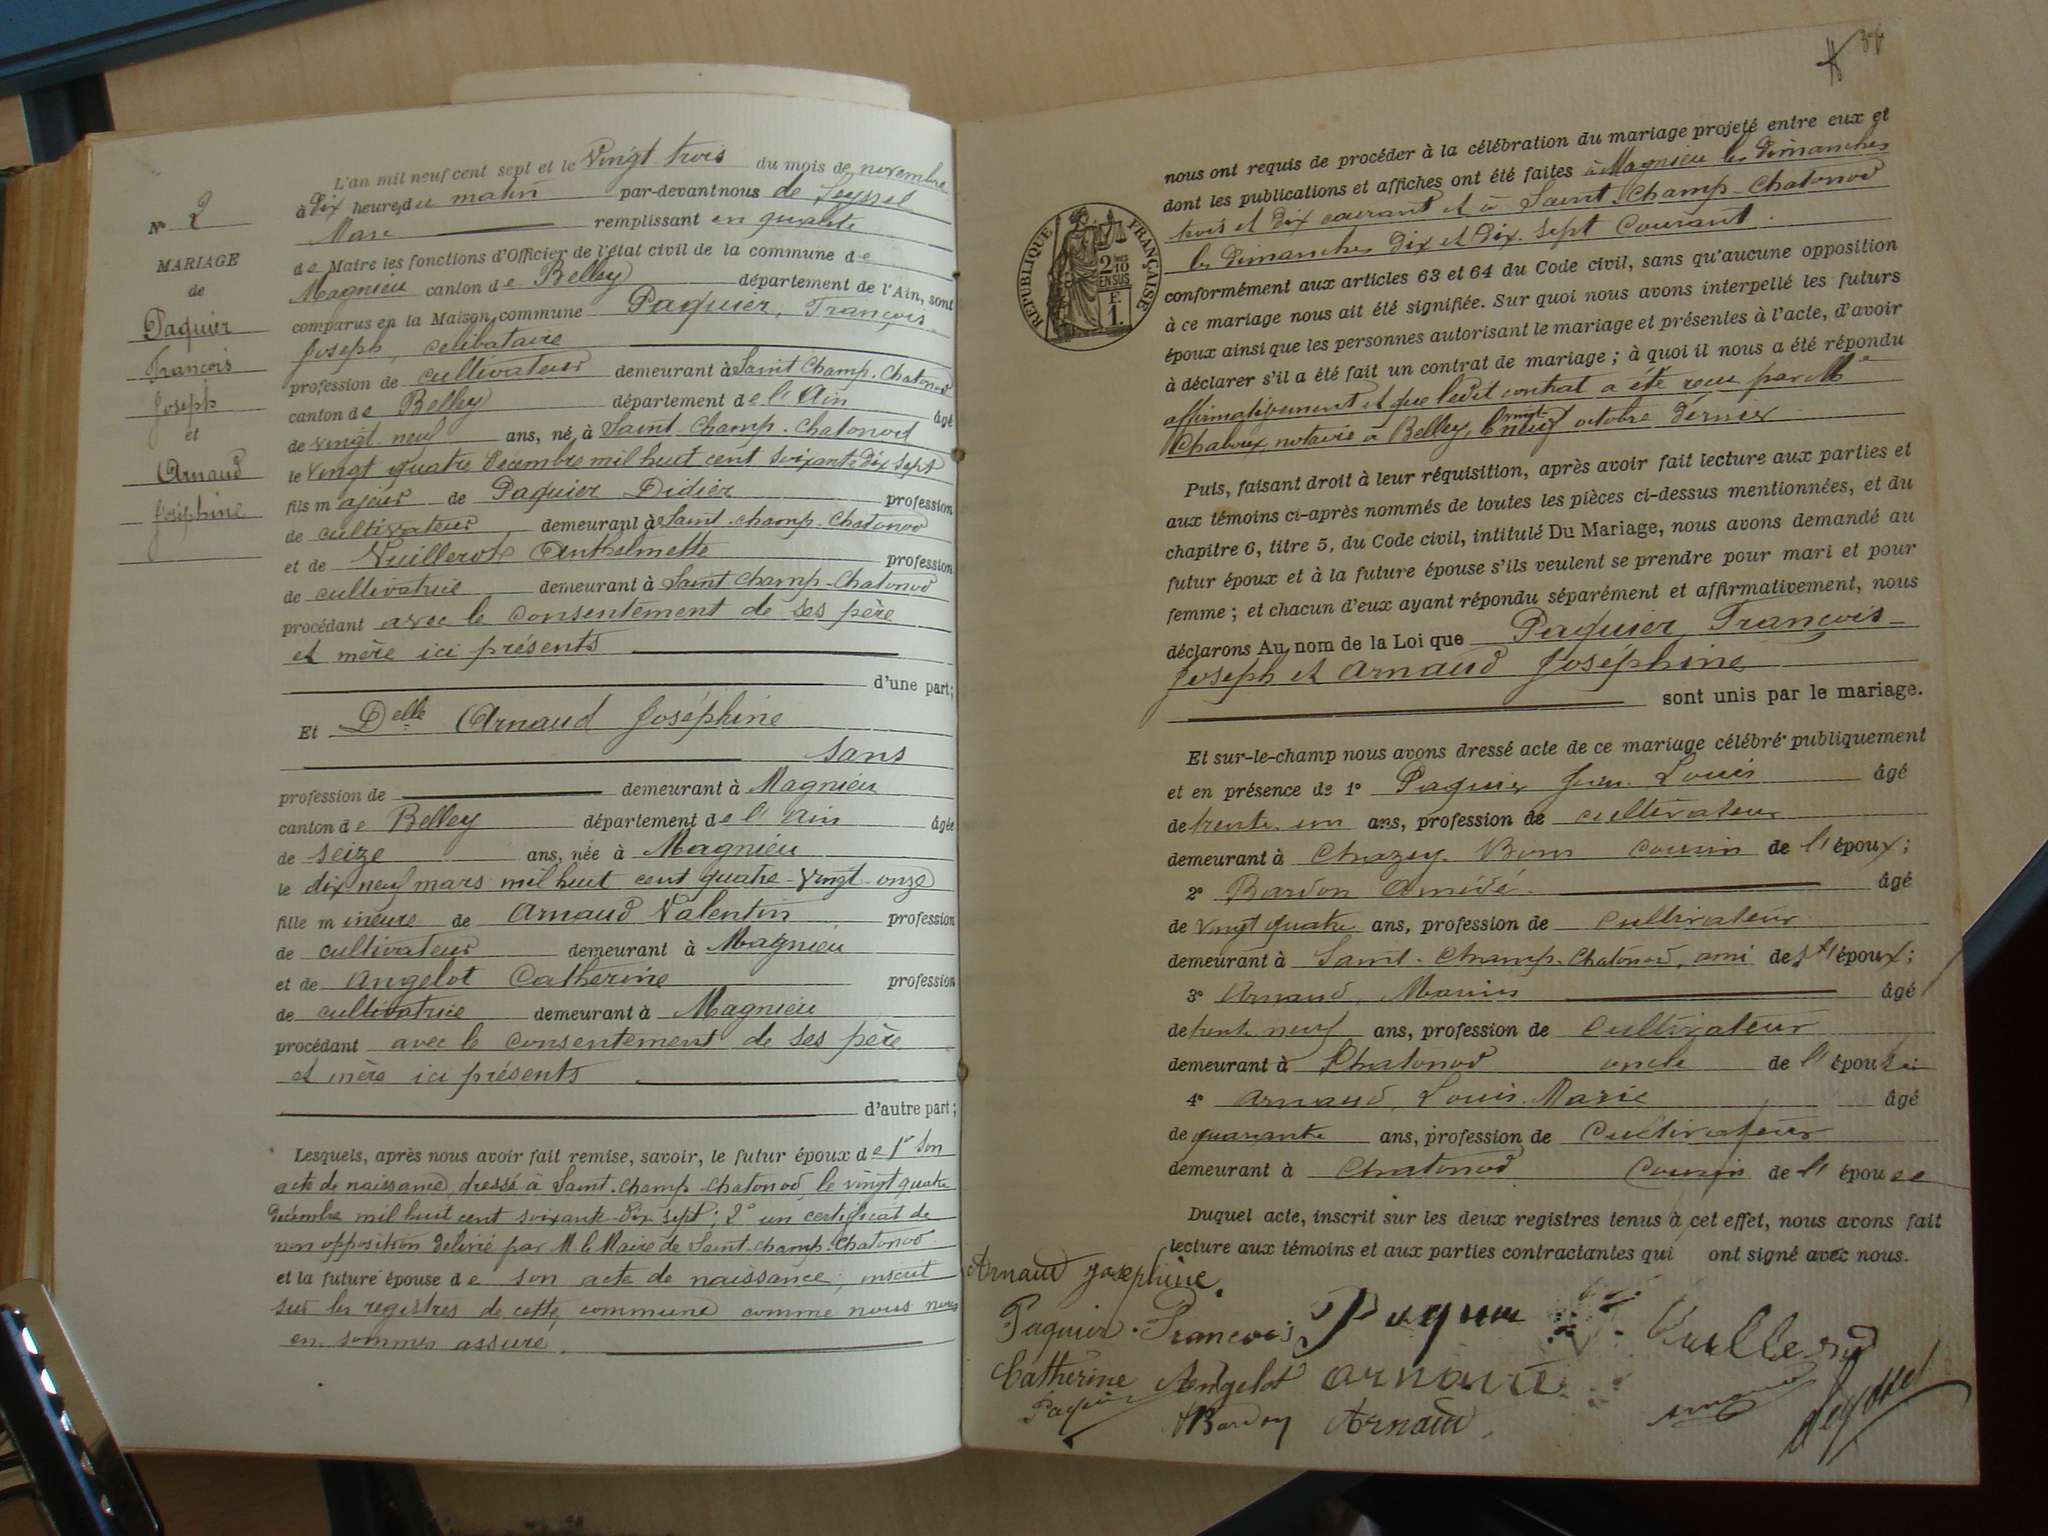 N° 2
MARIAGE
de
Paquier
François
Joseph
et
Arnaud
Joséphine
L'an mil neuf cent sept et le Vingt trois du mois de novembre
à Dix heures du matin par-devant nous de Seyssel
Marc remplissant en qualité
de Maire les fonctions d'Officier de l'état civil de la commune de
Magnieu canton de Belley département de l'Ain, sont
comparus en la Maison commune Paquier, François
Joseph, célibataire
profession de cultivateur demeurant à Saint Champ-Chatonod
canton de Belley département de l'Ain âgé
de vingt neuf ans, né à Saint-Champ-Chatonod
le vingt quatre Décembre mil huit cent soixante dix sept
fils majeur de Paquier Didier profession
de cultivateur demeurant à Saint-champ-Chatonod
et de Vuillerot Anthelmette profession
de cultivatrice demeurant à Saint-champ-Chatonod
procédant avec le consentement de ses père
et mère ici présents
d'une part;
Et Delle Arnaud Joséphine
sans
profession de demeurant à Magnieu
canton de Belley département de l'Ain âgée
de seize ans, née à Magnieu
le dix neuf mars mil huit cent quatre-vingt-onze
fille mineure de Arnaud Valentin profession
de cultivateur demeurant à Magnieu
et de Angelot Catherine profession
de cultivatrice demeurant à Magnieu
procédant avec le consentement de ses père
et mère ici présents
d'autre part;
Lesquels, après nous avoir fait remise, savoir, le futur époux de 1° son
acte de naissance, dressé à Saint-champ-Chatonod, le vingt quatre
Décembre mil huit cent soixante-Dix-Sept; 2° un certificat de
non opposition délivré par M. le Maire de Saint-champ-Chatonod
et la future épouse de son acte de naissance, inscrit
sur les registres de cette commune comme nous nous
en sommes assuré.
RÉPUBLIQUE FRANÇAISE
2/10 EN SUS
F. 1.
nous ont requis de procéder à la célébration du mariage projeté entre eux et
dont les publications et affiches ont été faites à Magnieu les Dimanches
trois et dix courant et à Saint Champ-Chatonod
les Dimanches Dix et Dix-Sept Courant.
conformément aux articles 63 et 64 du Code civil, sans qu'aucune opposition
à ce mariage nous ait été signifiée. Sur quoi nous avons interpellé les futurs
époux ainsi que les personnes autorisant le mariage et présentes à l'acte, d'avoir
à déclarer s'il a été fait un contrat de mariage; à quoi il nous a été répondu
affirmativement et que ledit contrat a été reçu par Me
notaire à Belley, le vingt neuf octobre Dernier
Puis, faisant droit à leur réquisition, après avoir fait lecture aux parties et
aux témoins ci-après nommés de toutes les pièces ci-dessus mentionnées, et du
chapitre 6, titre 5, du Code civil, intitulé Du Mariage, nous avons demandé au
futur époux et à la future épouse s'ils veulent se prendre pour mari et pour
femme; et chacun d'eux ayant répondu séparément et affirmativement, nous
déclarons Au nom de la Loi que Paquier, François-
Joseph et Arnaud Joséphine
sont unis par le mariage.
Et sur-le-champ nous avons dressé acte de ce mariage célébré publiquement
et en présence de 1° Paquier Jean-Louis âgé
de trente un ans, profession de cultivateur
demeurant à Chazey-Bons cousin de l'époux;
2° Bardon Amédé âgé
de vingt quatre ans, profession de cultivateur
demeurant à Saint-Champ-Chatonod, ami de l'époux;
3° Arnaud, Marius âgé
de trente neuf ans, profession de Cultivateur
demeurant à Chatonod oncle de l'épouse
4° Arnaud, Louis Marie âgé
de quarante ans, profession de Cultivateur
demeurant à Chatonod Cousin de l'épouse
Duquel acte, inscrit sur les deux registres tenus à cet effet, nous avons fait
lecture aux témoins et aux parties contractantes qui ont signé avec nous.
Arnaud Josephine
Paquier François Paquier Vuillerod
Catherine Angelot Arnaud
Paquier Bardon Arnaud